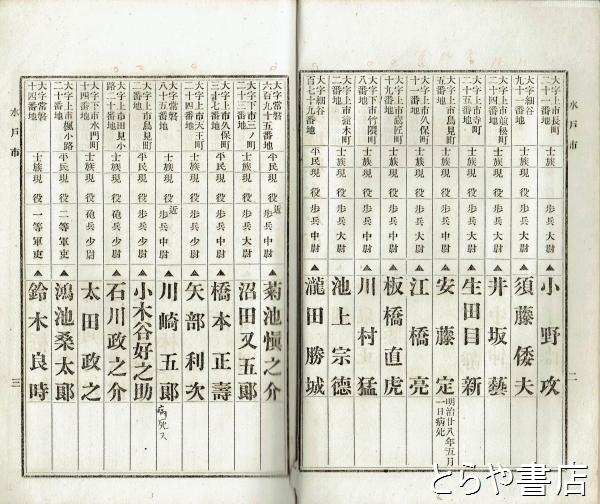 水戸市
大字上市長町
二十一番地
士族 現役 歩兵少尉 ▲小野攻
大字細谷
九十一番地
士族 現役 歩兵大尉 ▲須藤倭夫
士族 現役 歩兵中尉 ▲井坂藝
大字上市寺町
二十五番地
士族 現役 歩兵大尉 ▲生田目新
大字上市鳥見町
士族 現役 歩兵中尉 ▲安藤定 明治廿八年五月一日病死
大字上市久保町
十一番地
士族 現役 歩兵大尉 ▲江橋亮
十九番地
士族 現役 歩兵中尉 ▲板橋直虎
大字下市竹隈町
八番地
士族 現役 歩兵少尉 ▲川村猛
士族 現役 歩兵大尉 ▲池上宗德
大字細谷
百七十九番地
平民 現役 歩兵大尉 ▲瀧田勝城
二
大字常磐
六百九十五番地
平民 現役 近歩兵中尉 ▲菊池愼之介
大字下市三ノ町
二十三番地
士族 現役 歩兵大尉 ▲沼田又五郎
大字上市久保町
三十七番地
平民 現役 歩兵中尉 ▲橋本正壽
大字上市天王町
二十四番地
士族 現役 歩兵少尉 ▲矢部利次
大字常磐
八十五番地
士族 現役 近歩兵中尉 ▲川崎五郎 病死ス
大字上市鳥見町
二番地
平民 現役 歩兵少尉 ▲小木谷好之助
大字上市田見小
路二十番地
士族 現役 砲兵少尉 ▲石川政之介
大字下市水門町
十四番地
士族 現役 砲兵少尉 ▲太田政之
大字上市楓小路
二十番地
士族 現役 二等軍吏 ▲鴻池桑太郎
大字常磐
十四番地
士族 現役 一等軍吏 ▲鈴木良時
水戸市
三
とらや書店